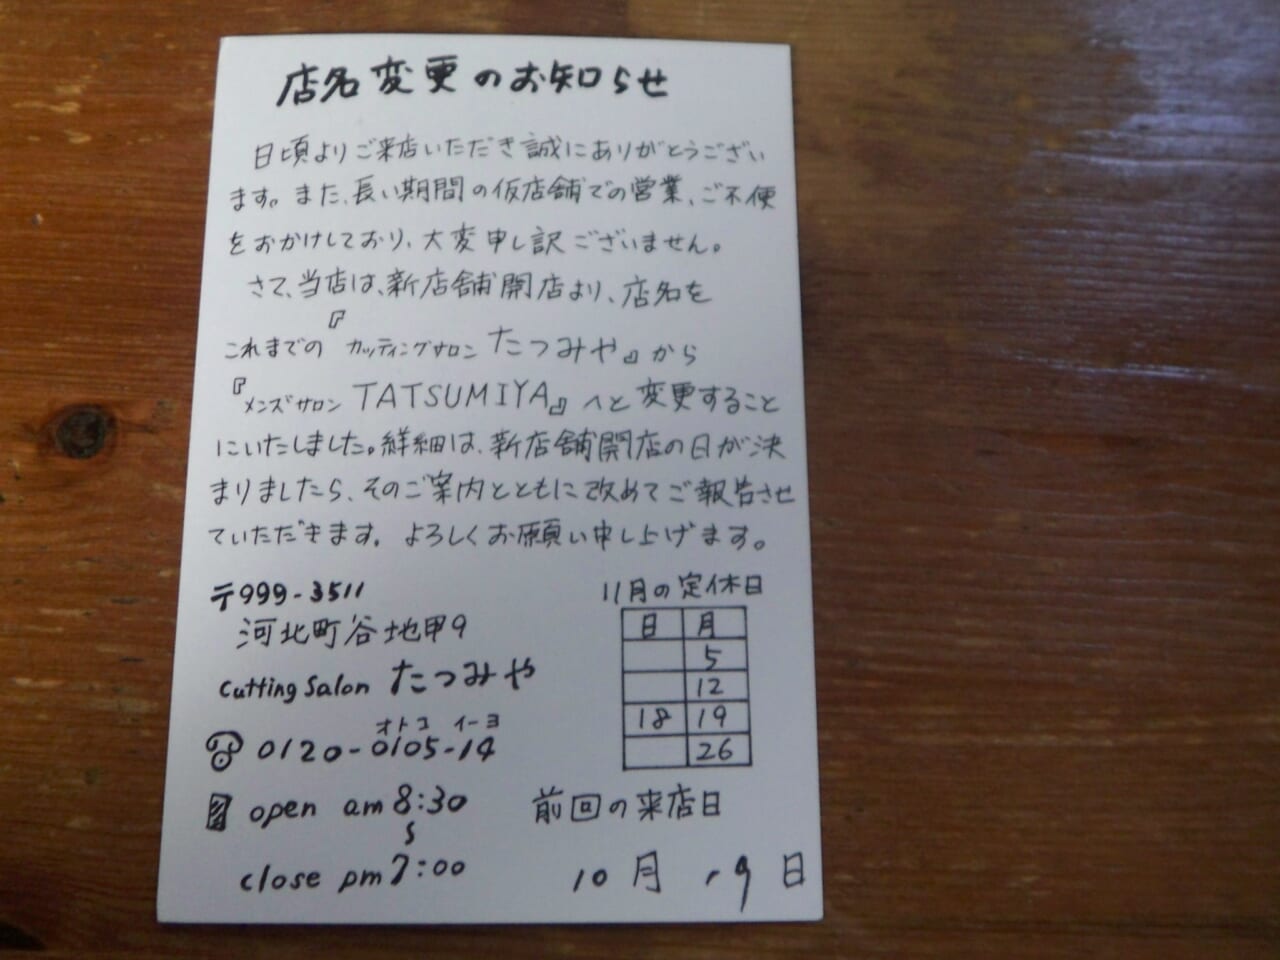 店名変更のお知らせ
日頃よりご来店いただき誠にありがとうござい
ます。また、長い期間の仮店舗での営業、ご不便
をおかけしており、大変申し訳ございません。
さて、当店は、新店舗開店より、店名を
これまでの『カッティングサロン たつみや』から
『メンズサロン TATSUMIYA』へと変更すること
にいたしました。詳細は、新店舗開店の日が決
まりましたら、そのご案内とともに改めてご報告させ
ていただきます。よろしくお願い申し上げます。
〒999-3511
河北町谷地甲9
Cutting Salon たつみや
オトコ イーヨ
☎ 0120-0105-14
open am 8:30
〜
close pm 7:00
11月の定休日
日 月
5
12
18 19
26
前回の来店日
10月 19日